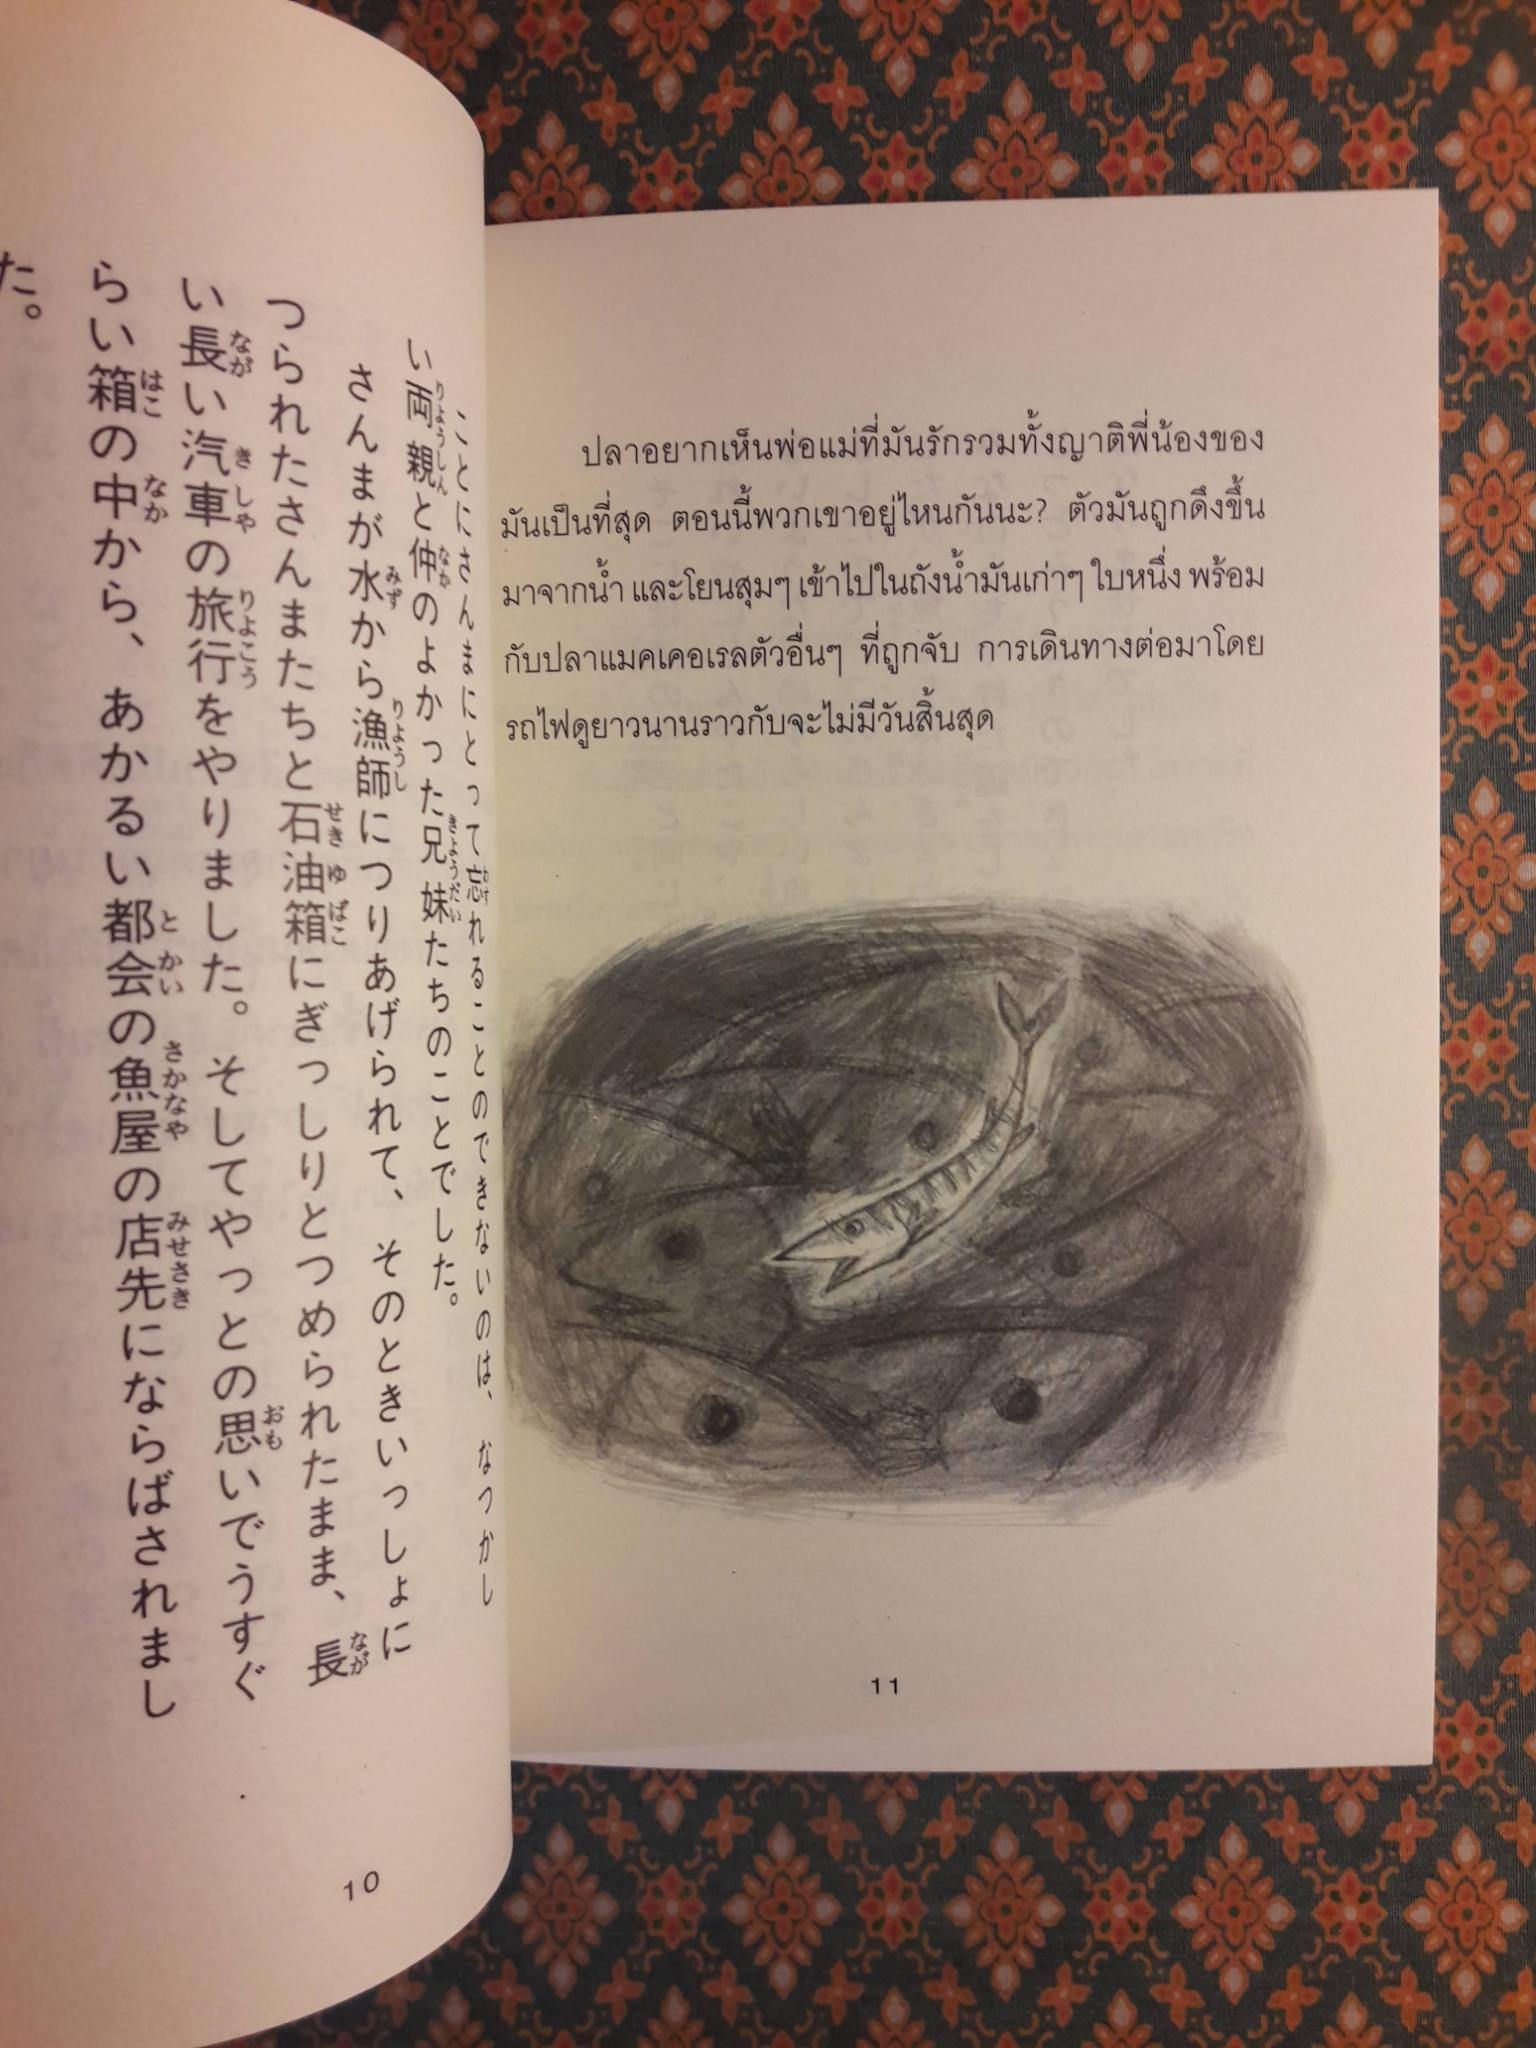 ことにさんまにとって忘れることのできないのは、なつかし
い両親と仲のよかった兄妹たちのことでした。
さんまが水から漁師につりあげられて、そのときいっしょに
つられたさんまたちと石油箱にぎっしりとつめられたまま、長
い長い汽車の旅行をやりました。そしてやっとの思いでうすぐ
らい箱の中から、あかるい都会の魚屋の店先にならばされまし
た。
10
ปลาอยากเห็นพ่อแม่ที่มันรักรวมทั้งญาติพี่น้องของ
มันเป็นที่สุด ตอนนี้พวกเขาอยู่ไหนกันนะ? ตัวมันถูกดึงขึ้น
มาจากน้ำ และโยนสุมๆ เข้าไปในถังน้ำมันเก่าๆ ใบหนึ่ง พร้อม
กับปลาแมคเคอเรลตัวอื่นๆ ที่ถูกจับ การเดินทางต่อมาโดย
รถไฟดูยาวนานราวกับจะไม่มีวันสิ้นสุด
11